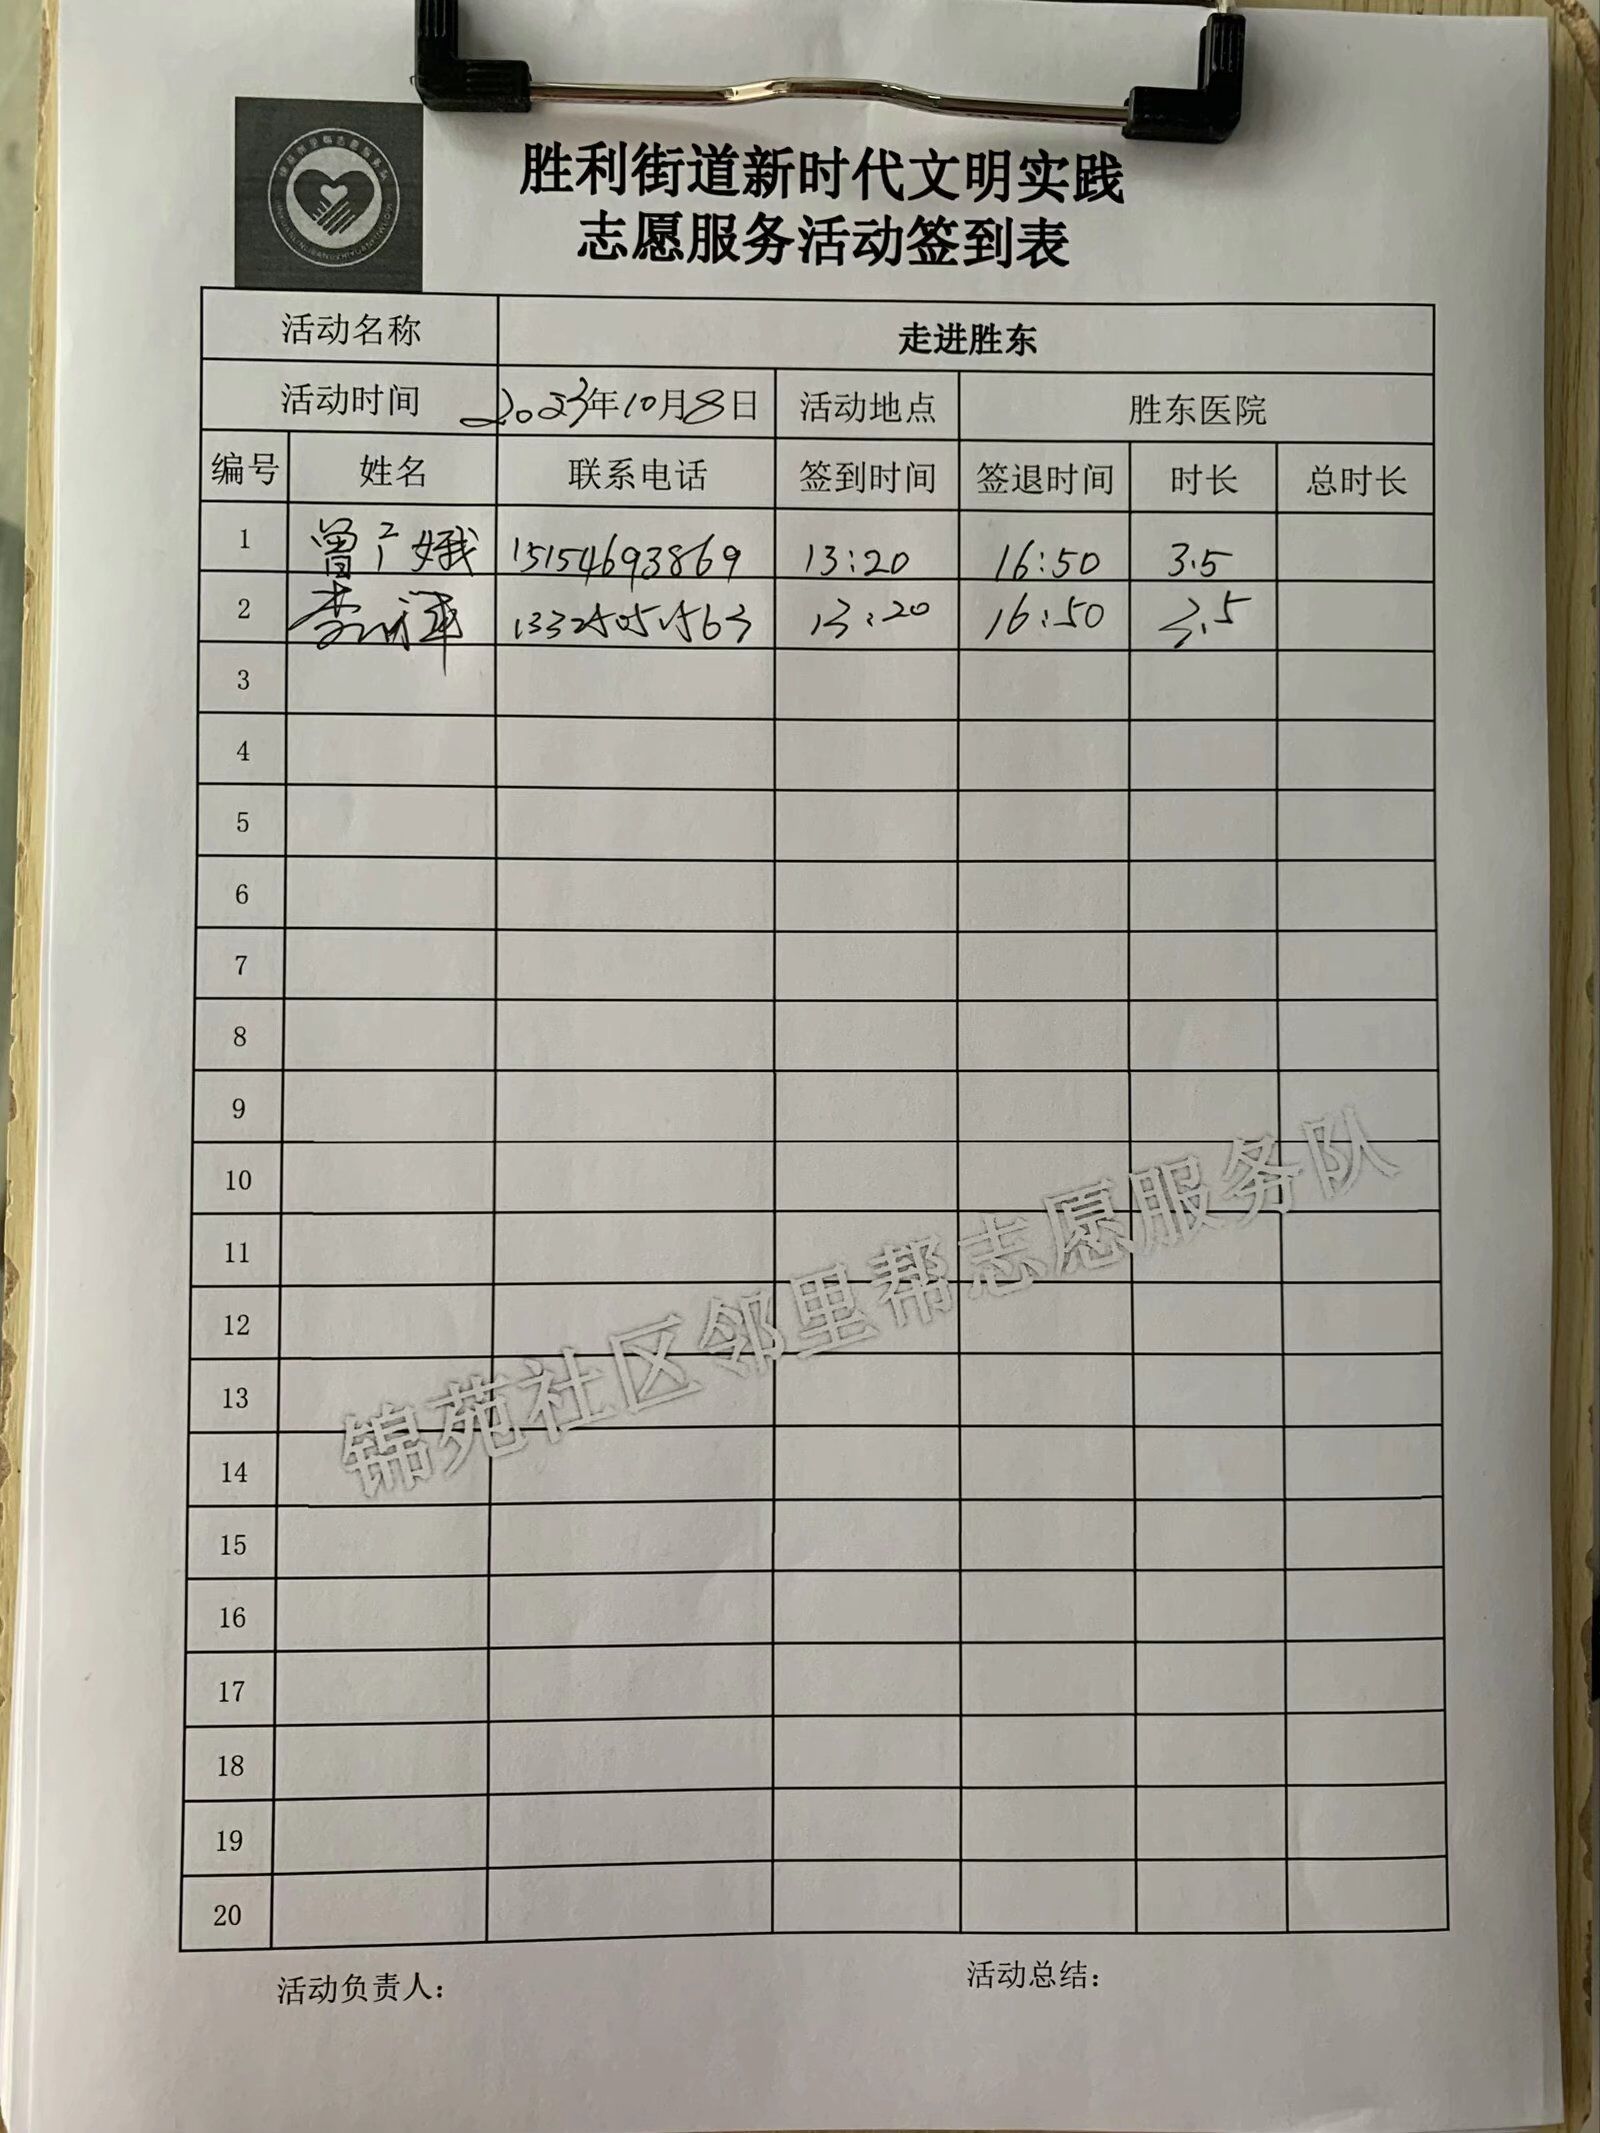 胜利街道新时代文明实践
志愿服务活动签到表
活动名称 走进胜东
活动时间 2023年10月8日 活动地点 胜东医院
编号 姓名 联系电话 签到时间 签退时间 时长 总时长
1 曾广娥 15154693869 13:20 16:50 3.5
2 李 13325051563 13:20 16:50 3.5
3
4
5
6
7
8
9
10
11
12
13
14
15
16
17
18
19
20
锦苑社区邻里帮志愿服务队
活动负责人： 活动总结：